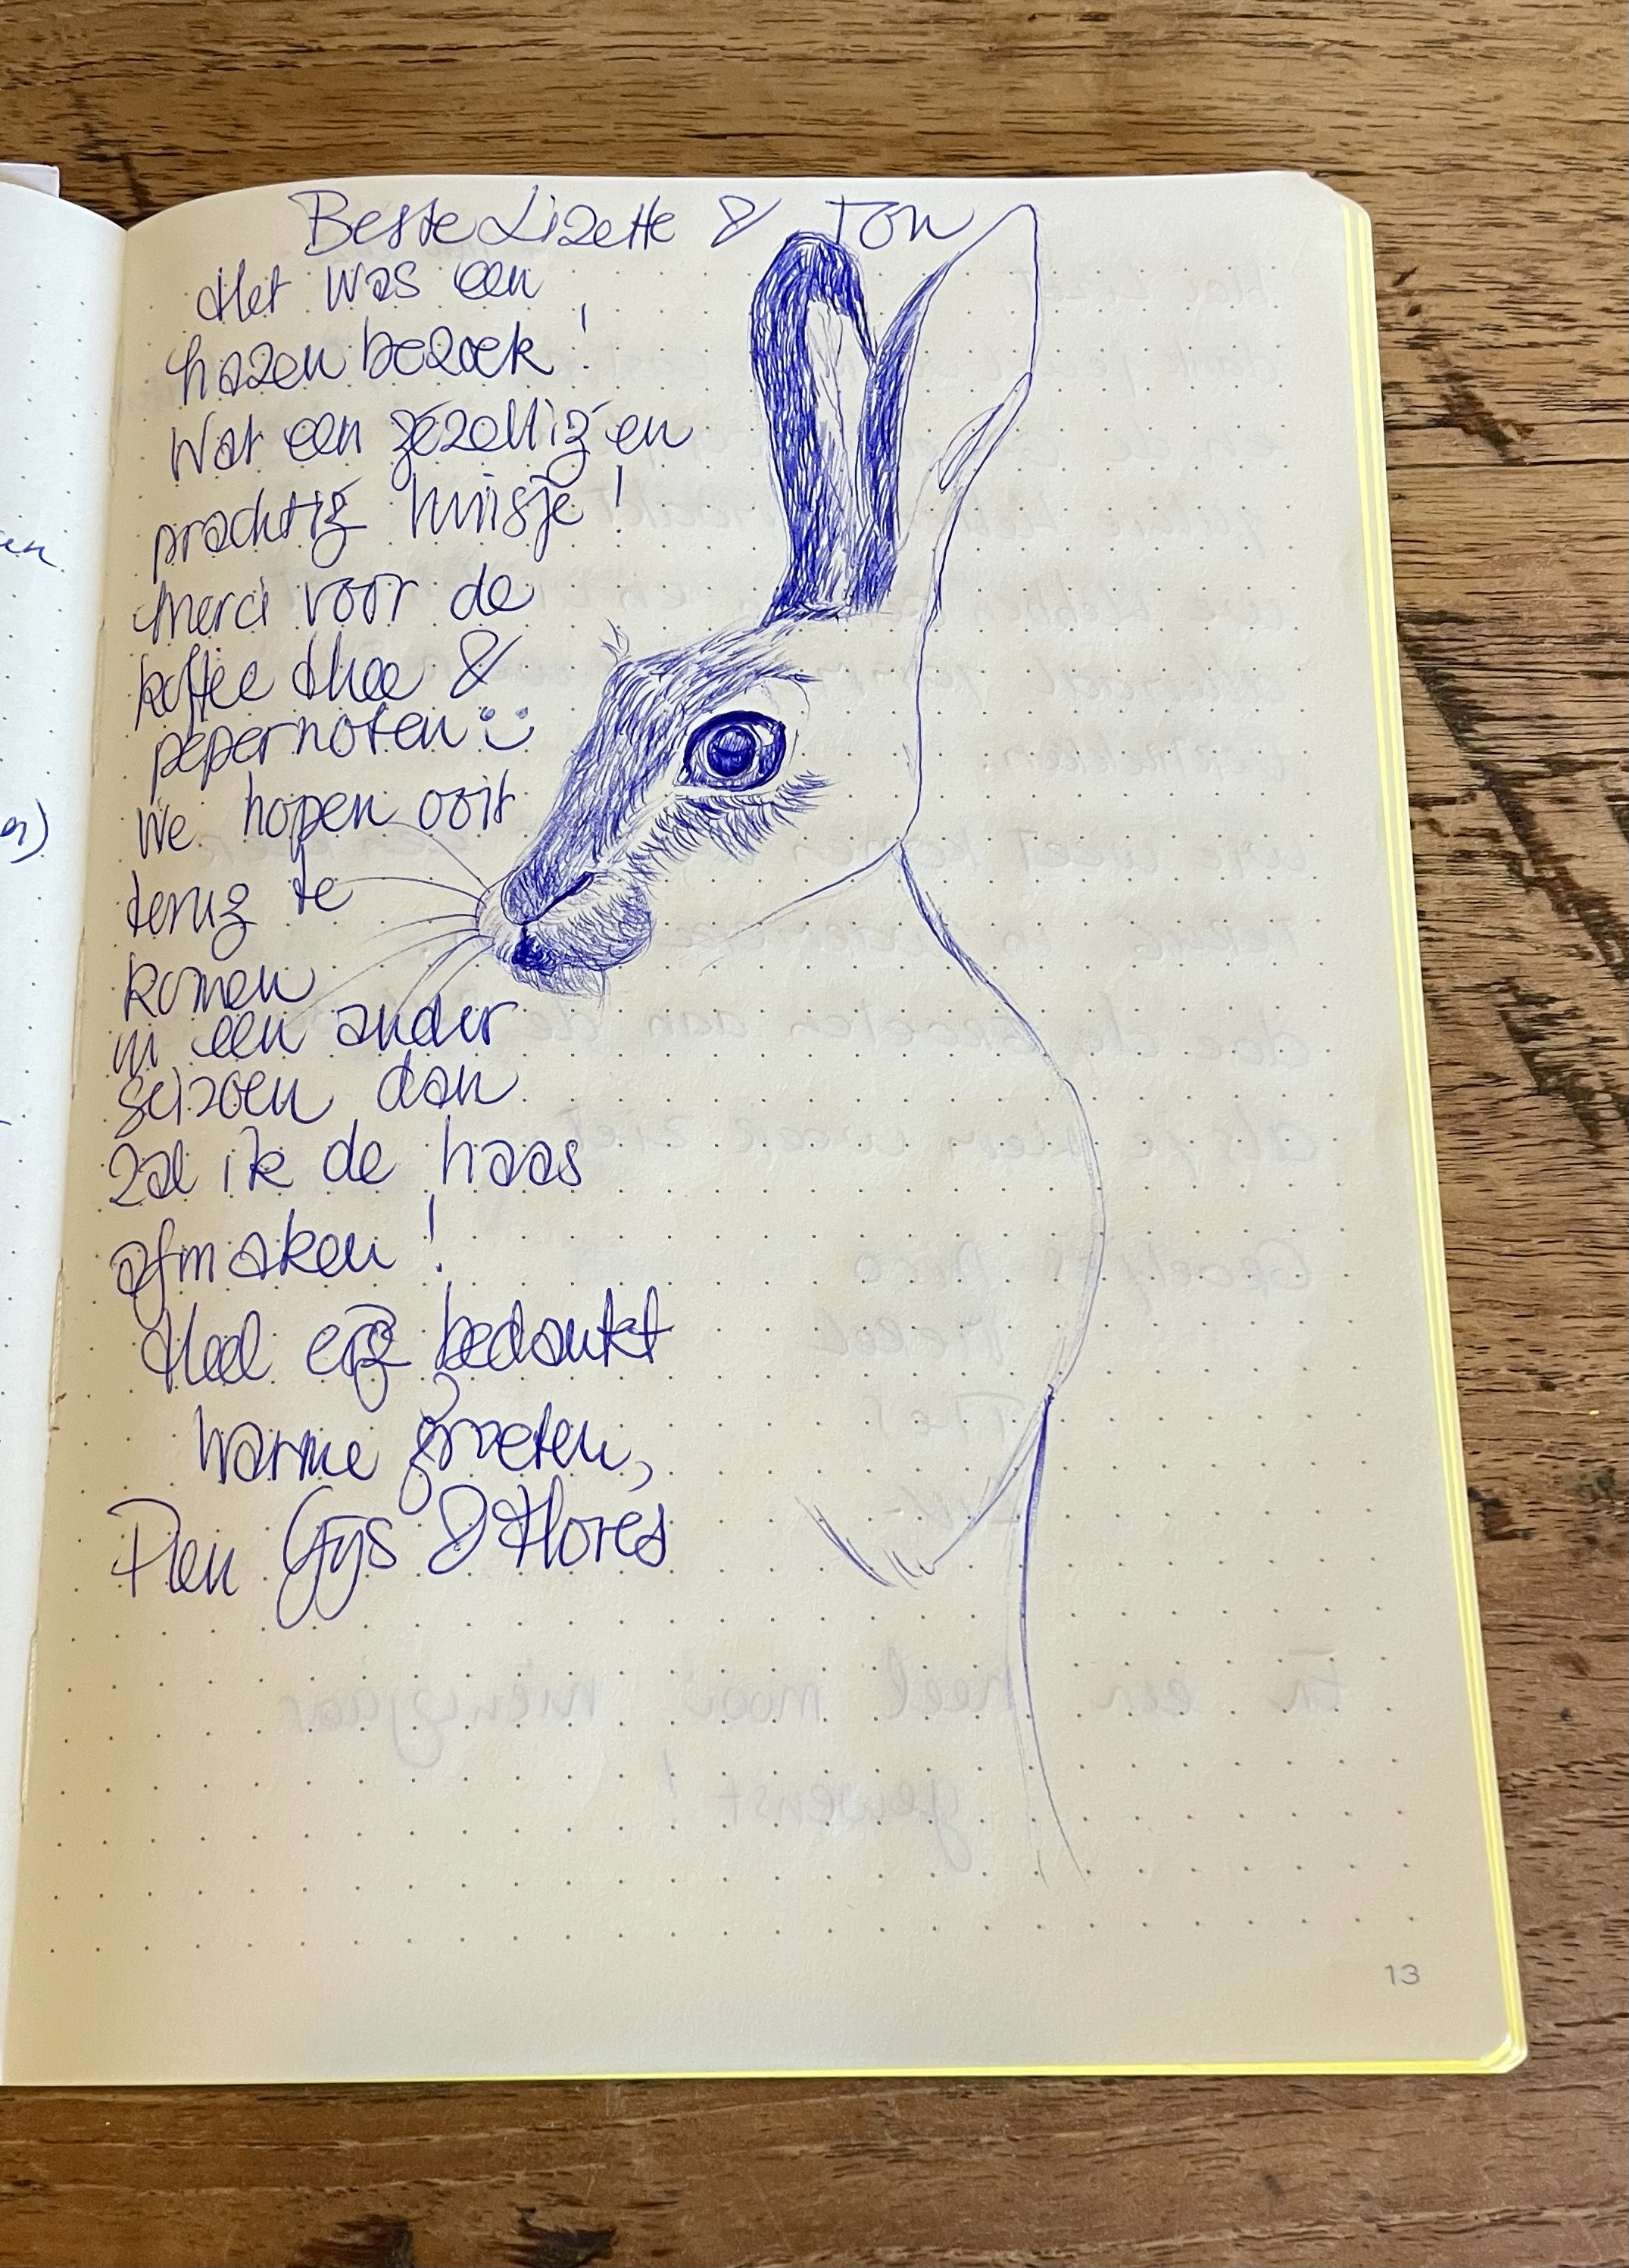 Beste Lizette & Ton
Het was een
hazen bezoek!
Wat een gezellig en
prachtig huisje!
Merci voor de
koffie thee &
pepernoten
We hopen ooit
terug te
komen
in een ander
seizoen dan
zal ik de haas
afmaken!
Heel erg bedankt
Warme groeten,
Pien Gijs & Flores
13